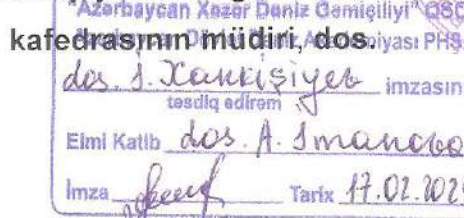 "Azərbaycan Xəzər Dəniz Gəmiçiliyi" QSC
kafedrasının müdiri, dos.
Dəniz Akademiyası PHŞ
dos. İ. Xankişiyev imzasın
təsdiq edirəm
Elmi Katib dos. A.
İmza
Tarix 17.02.202